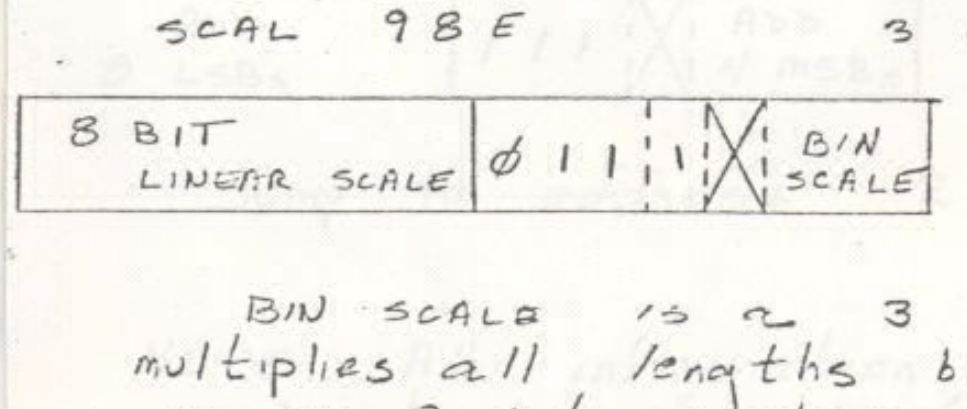 SCAL 98E 3
8 BIT
LINEAR SCALE
Ø 1 1 1
BIN
SCALE
BIN SCALE is a 3
multiplies all lengths b